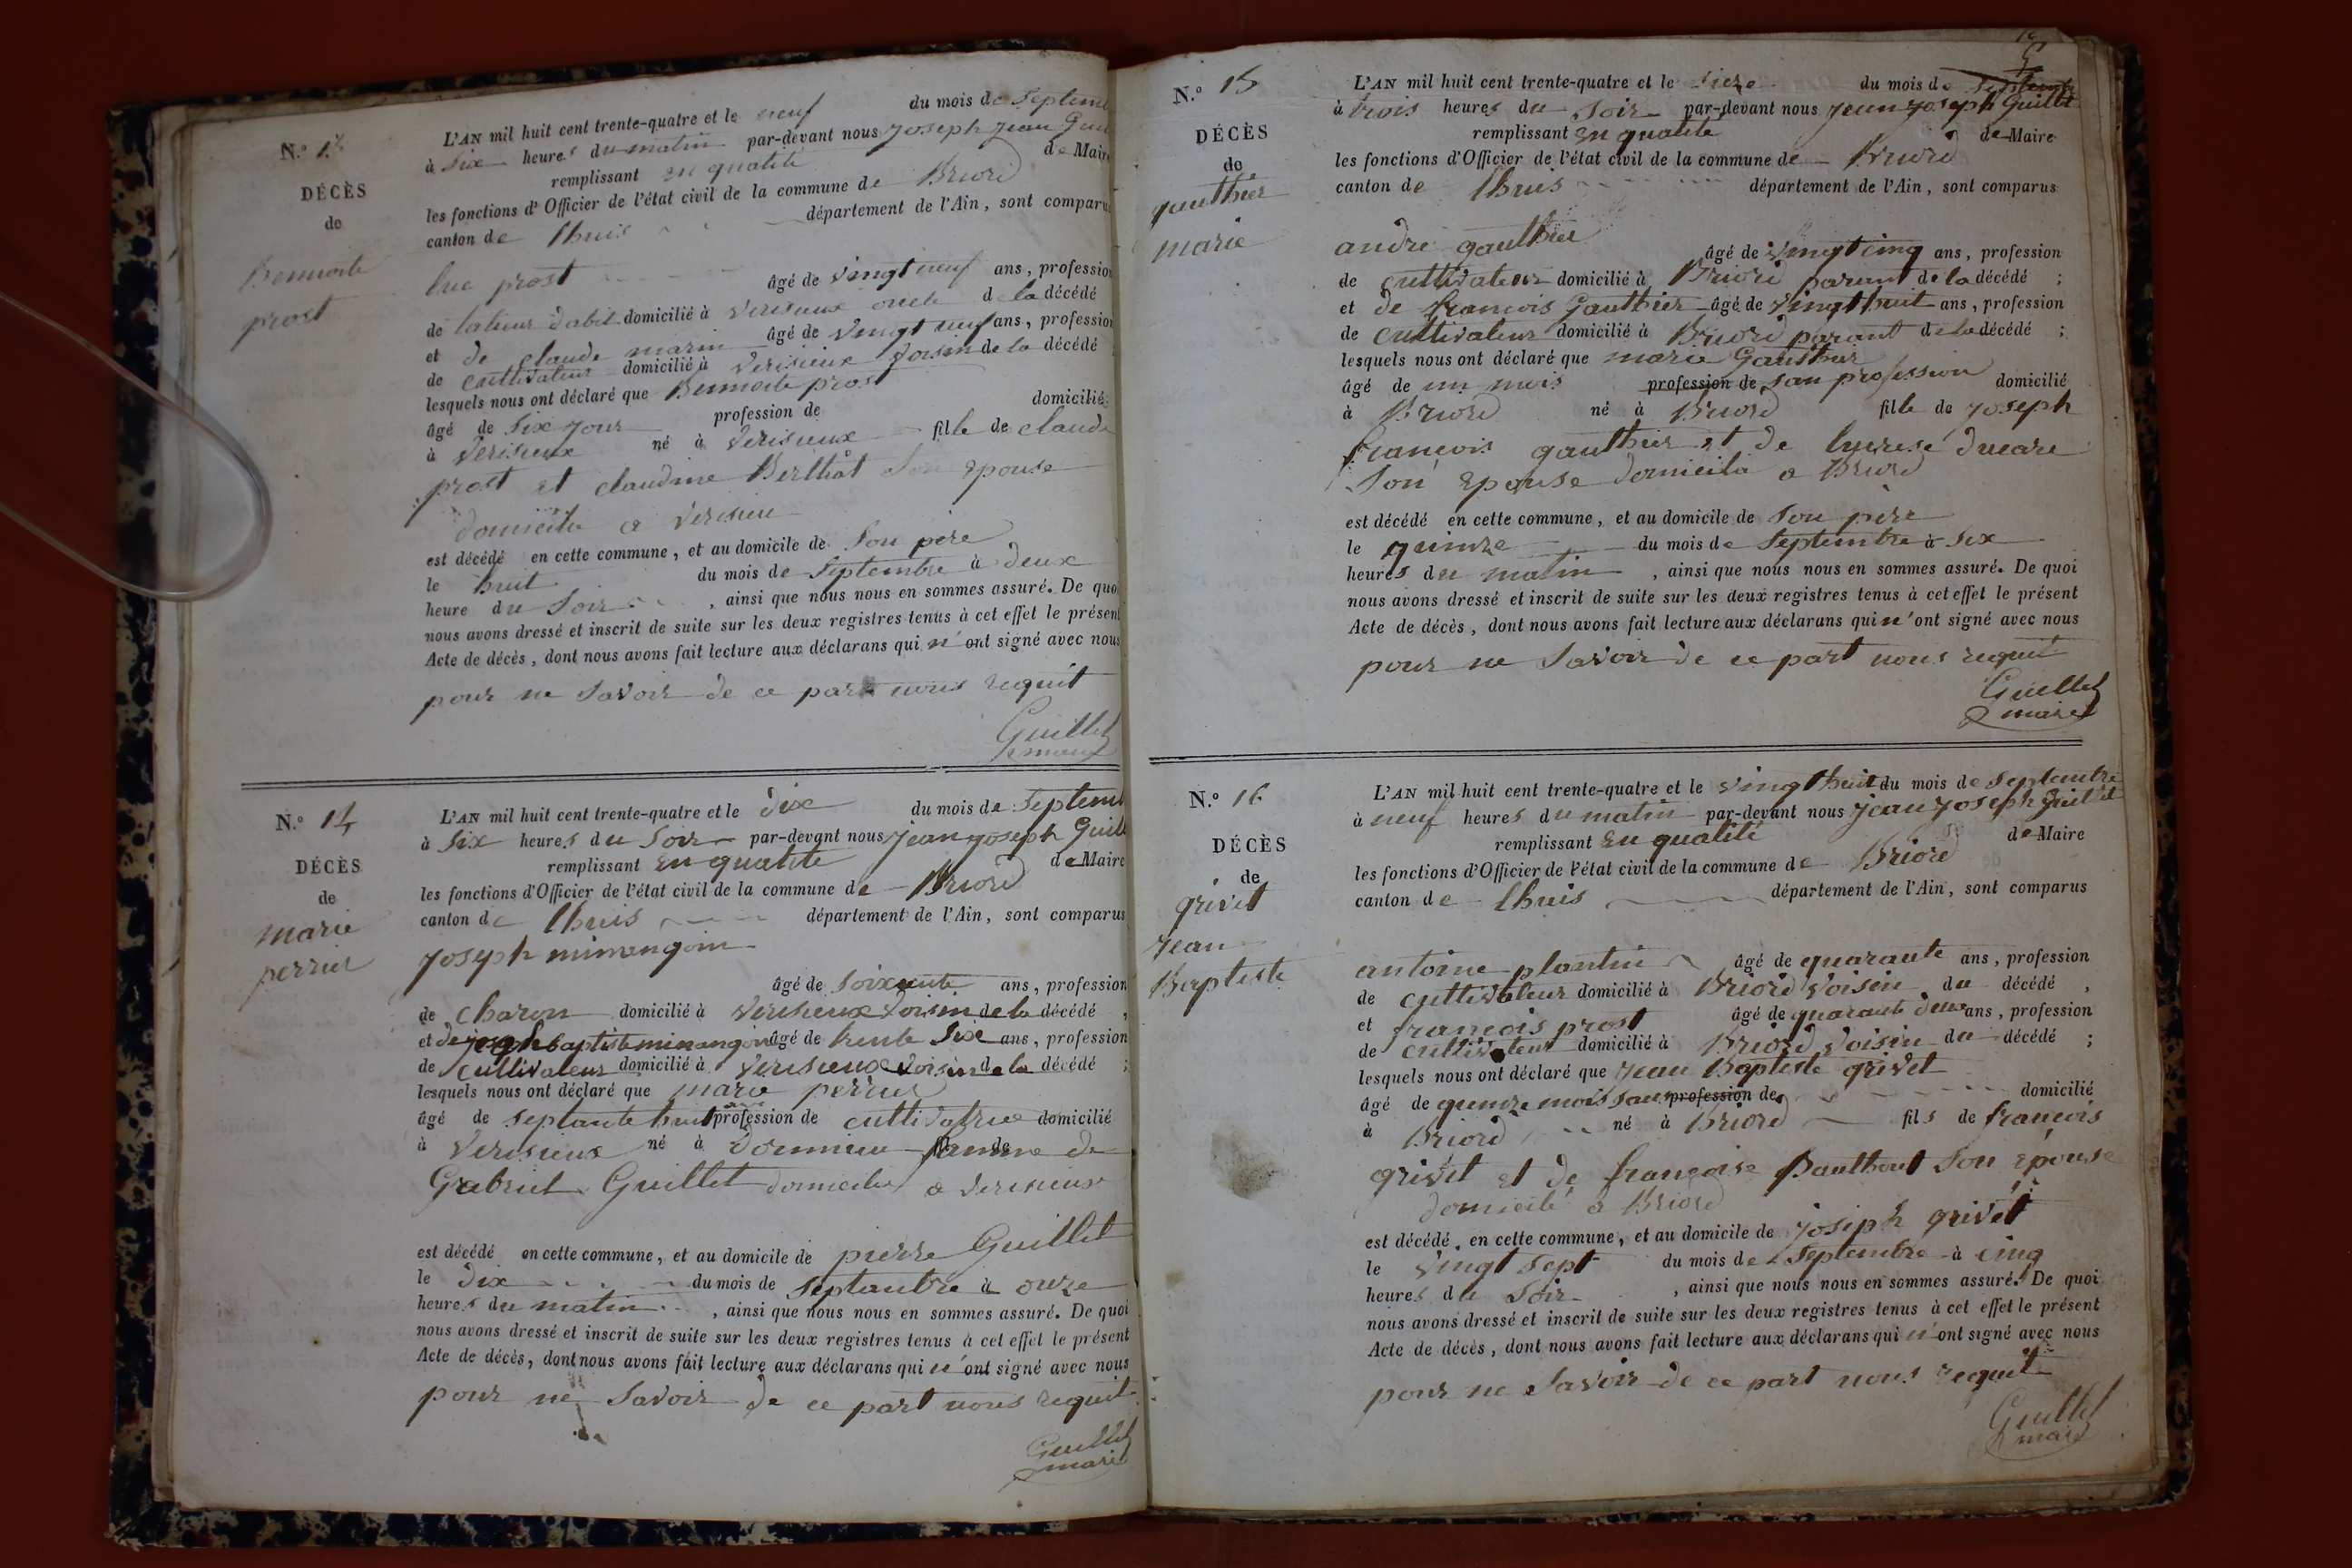 N.º 13
DÉCÈS
de
prost
L'AN mil huit cent trente-quatre et le neuf du mois de Septemb
à Six heures du matin par-devant nous Joseph Jean Guil
remplissant en qualité de Maire
les fonctions d'Officier de l'état civil de la commune de Briord
canton de lhuis département de l'Ain, sont comparus
luc prost âgé de vingt neuf ans, profession
de talieur dabit domicilié à Verisieux oncle de la décédé
et de claude marin âgé de vingt neuf ans, profession
de cultivateur domicilié à Verisieux voisin de la décédé
lesquels nous ont déclaré que prost
âgé de Six jour profession de domicilié
à Verisieux né à Verisieux fille de claude
prost et claudine Berthât son epouse
domicila a Verisieu
est décédé en cette commune, et au domicile de son pere
le huit du mois de Septembre à deux
heure du Soir, ainsi que nous nous en sommes assuré. De quoi
nous avons dressé et inscrit de suite sur les deux registres tenus à cet effet le présent
Acte de décès, dont nous avons fait lecture aux déclarans qui n'ont signé avec nous
pour ne savoir de ce part nous requit
Guillet
maire
N.º 14
DÉCÈS
de
marie
perrier
L'AN mil huit cent trente-quatre et le dix du mois de Septemb
à Six heures du Soir par-devant nous jean joseph Guill
remplissant en qualité de Maire
les fonctions d'Officier de l'état civil de la commune de Briord
canton de lhuis département de l'Ain, sont comparus
joseph mimangoin
âgé de soixante ans, profession
de charon domicilié à Verisieux voisin de la décédé,
et de baptiste minangoin âgé de trente Six ans, profession
de cultivateur domicilié à Verisieux voisin de la décédé;
lesquels nous ont déclaré que marie perrier
âgé de septante huit profession de cultivatrice domicilié
à Verisieux né à famme de
Gabriel Guillet domicilié a verisieux
est décédé en cette commune, et au domicile de pierre Guillet
le dix du mois de septanbre à onze
heures du matin, ainsi que nous nous en sommes assuré. De quoi
nous avons dressé et inscrit de suite sur les deux registres tenus à cet effet le présent
Acte de décès, dont nous avons fait lecture aux déclarans qui n'ont signé avec nous
pour ne savoir de ce part nous requit
Guillet
maire
N.º 15
DÉCÈS
de
gauthier
marie
L'AN mil huit cent trente-quatre et le sieze du mois de Septembre
à trois heures du Soir par-devant nous jean joseph Guillet
remplissant en qualité de Maire
les fonctions d'Officier de l'état civil de la commune de Briord
canton de lhuis département de l'Ain, sont comparus
andre gauthier
âgé de vingt cinq ans, profession
de cultivateur domicilié à Briord parant de la décédé;
et de francois Gauthier âgé de vingt huit ans, profession
de cultivateur domicilié à Briord parant de la décédé;
lesquels nous ont déclaré que marie Gauthier
âgé de un mois profession de san profession domicilié
à Briord né à Briord fille de joseph
francois gauthier et de ducare
son epouse domicila a Briord
est décédé en cette commune, et au domicile de son pere
le quinze du mois de Septembre à Six
heures du matin, ainsi que nous nous en sommes assuré. De quoi
nous avons dressé et inscrit de suite sur les deux registres tenus à cet effet le présent
Acte de décès, dont nous avons fait lecture aux déclarans qui n'ont signé avec nous
pour ne savoir de ce part nous requit
Guillet
maire
N.º 16
DÉCÈS
de
grivet
jean
Baptiste
L'AN mil huit cent trente-quatre et le vingt huit du mois de septanbre
à neuf heures du matin par-devant nous jean joseph Guillet
remplissant en qualité de Maire
les fonctions d'Officier de l'état civil de la commune de Briord
canton de lhuis département de l'Ain, sont comparus
antoine plantin âgé de quarante ans, profession
de cultivateur domicilié à Briord voisin du décédé,
et francois prost âgé de quarante deux ans, profession
de cultivateur domicilié à Briord voisin du décédé;
lesquels nous ont déclaré que jean Baptiste grivet
âgé de quinze mois sans profession de domicilié
à Briord né à Briord fils de francois
grivet et de francoise son épouse
domicilé a Briord
est décédé en cette commune, et au domicile de joseph grivet
le vingt sept du mois de Septembre à cinq
heures du Soir, ainsi que nous nous en sommes assuré. De quoi
nous avons dressé et inscrit de suite sur les deux registres tenus à cet effet le présent
Acte de décès, dont nous avons fait lecture aux déclarans qui n'ont signé avec nous
pour ne savoir de ce part nous requit
Guillet
maire